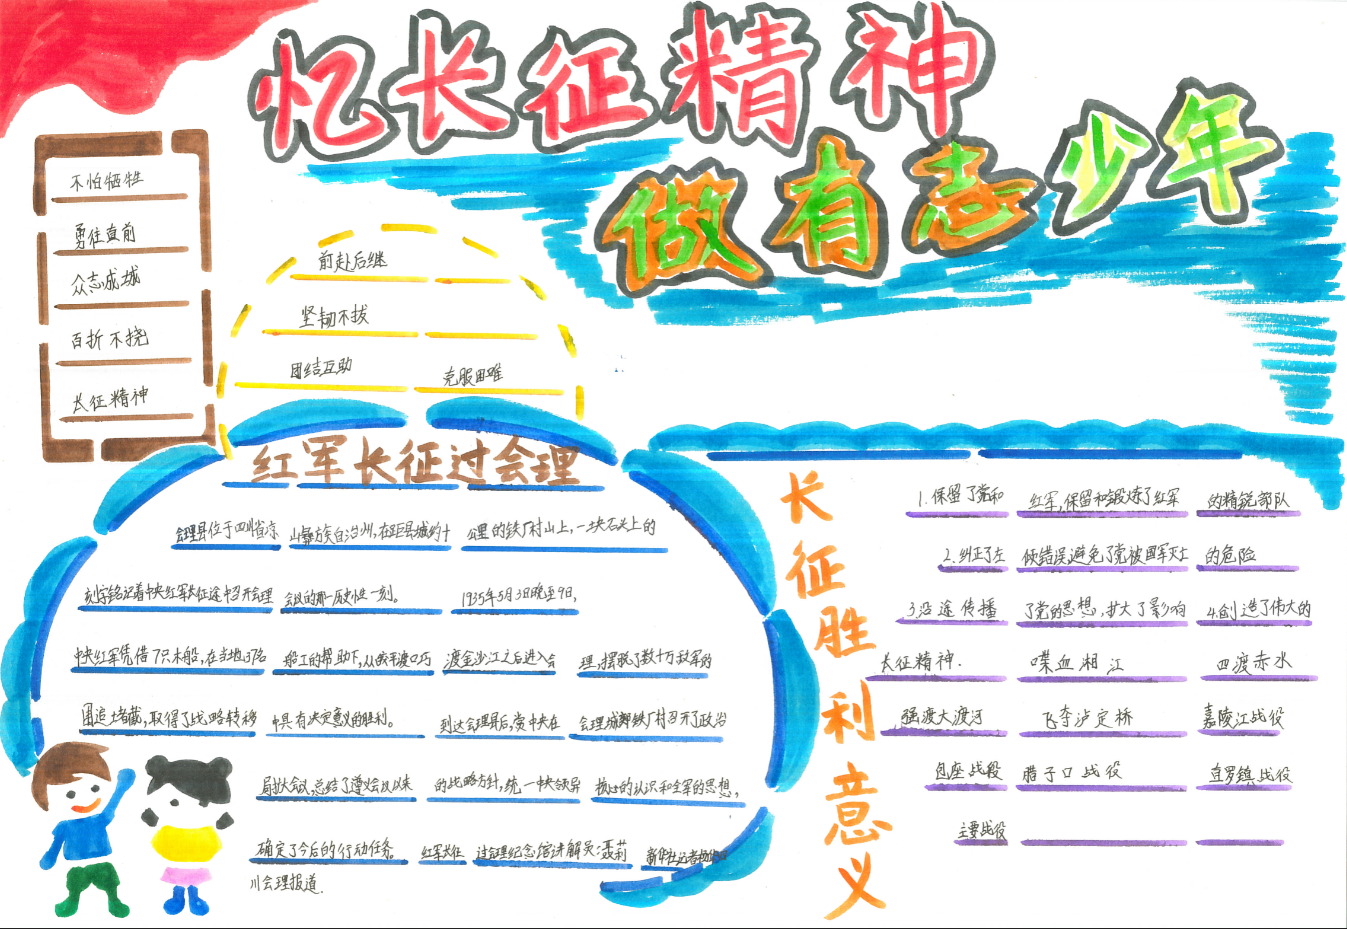 忆长征精神
做有志少年
不怕牺牲
勇往直前
众志成城
百折不挠
长征精神
前赴后继
坚韧不拔
团结互助 克服困难
红军长征过会理
会理县位于四川省凉 山彝族自治州,在距县城约十 公里的铁厂村山上,一块石头上的
刻字铭记着中央红军长征途中召开会理 会议的那一历史性一刻。 1935年5月3日晚至9日,
中央红军凭借7只木船,在当地37名 船工的帮助下,从皎平渡口巧 渡金沙江之后进入会 理,摆脱了数十万敌军的
围追堵截,取得了战略转移 中具有决定意义的胜利。 到达会理县后,党中央在 会理城郊铁厂村召开了政治
局扩大会议,总结了遵义会议以来 的战略方针,统一中央领导 核心的认识和全军的思想,
确定了今后的行动任务。 红军长征 过会理纪念馆讲解员:聂莉 新华社记者
川会理报道.
长征胜利意义
1.保留了党和 红军,保留和锻炼了红军 的精锐部队
2.纠正了左 倾错误,避免了党被国军灭亡 的危险
3.沿途传播 了党的思想,扩大了影响 4.创造了伟大的
长征精神. 喋血湘江 四渡赤水
强渡大渡河 飞夺泸定桥 嘉陵江战役
包座战役 腊子口战役 直罗镇战役
主要战役